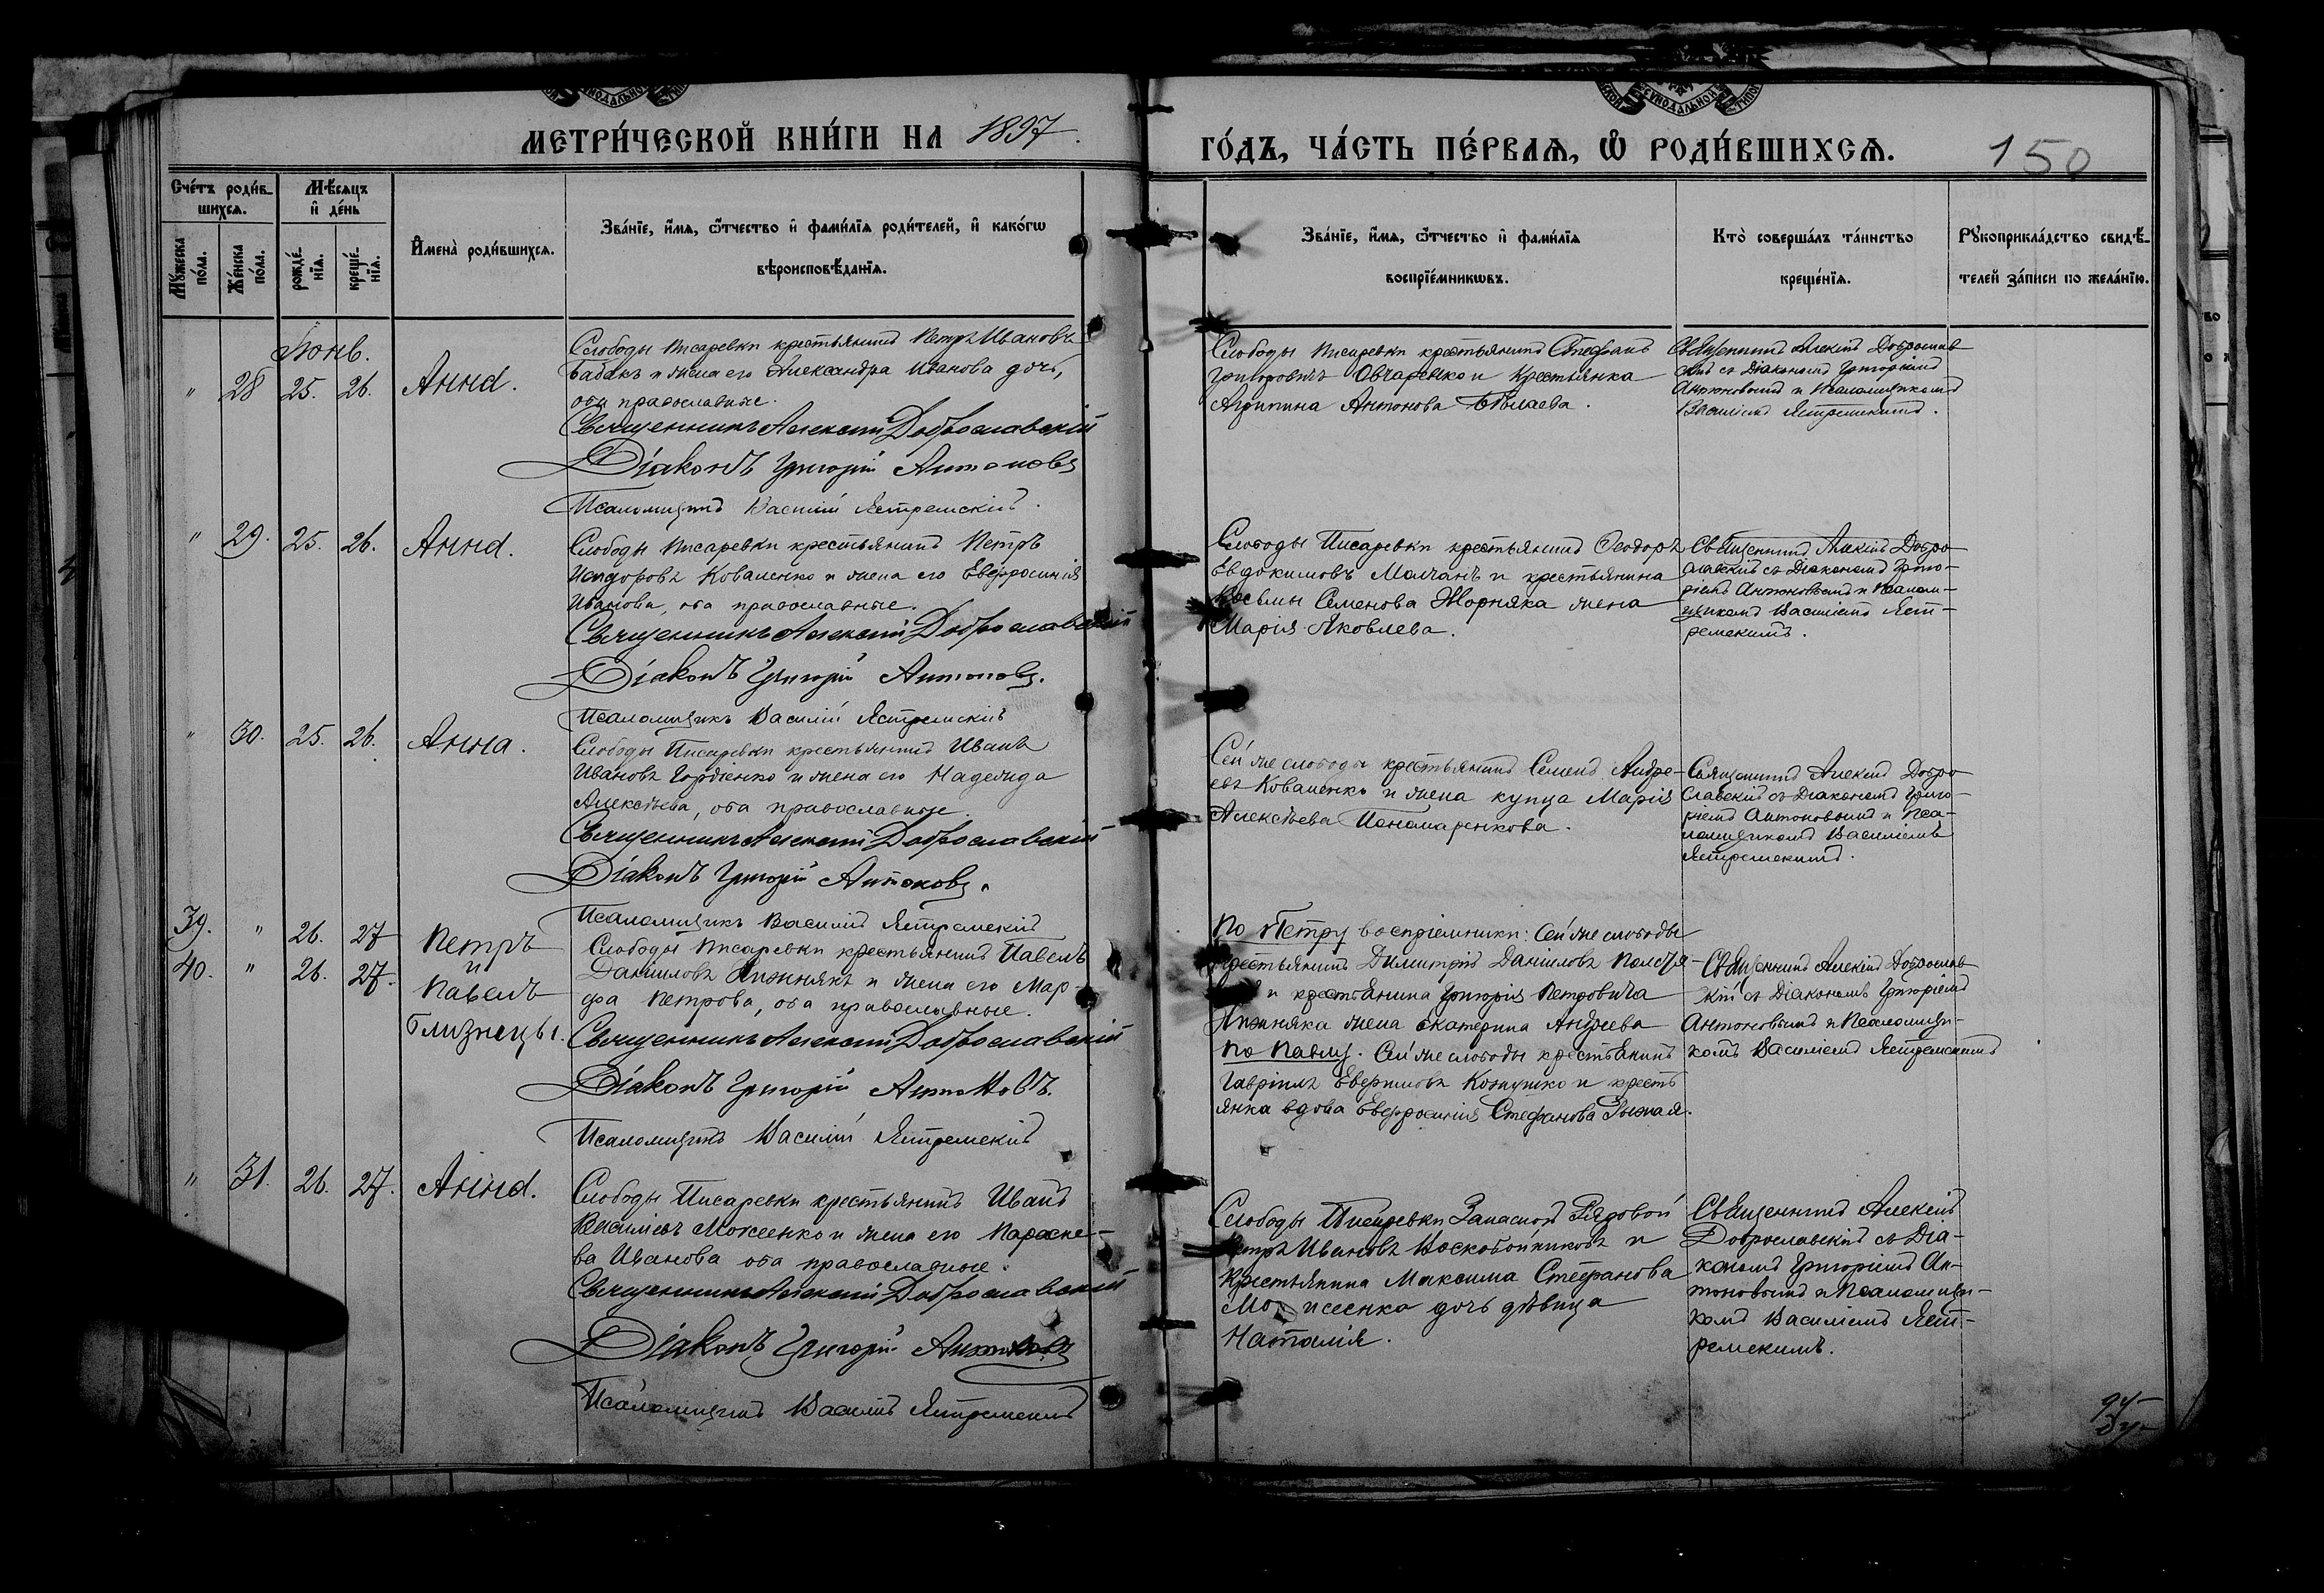 МЕТРИ́ЧЕСКОЙ КНИ́ГИ НА 1897.
ГО́ДЪ, ЧА́СТЬ ПЕ́РВАѦ, Ѡ҆ РОДИ́ВШИХСѦ. 150
Сче́тъ роди́в-
шихсѧ.
Мѣ́сѧцъ
и҆ де́нь
Мꙋ́жеска
по́ла.
Же́нска
по́ла.
рожде́-
нїѧ.
креще́-
нїѧ.
И҆мена̀ роди́вшихсѧ.
Зва́нїе, и҆́мѧ, ѻ҆́тчество и҆ фами́лїѧ роди́телей, и҆ како́гѡ
вѣроисповѣ́данїѧ.
Зва́нїе, и҆́мѧ, ѻ҆́тчество и҆ фами́лїѧ
воспрїе́мникѡвъ.
Кто̀ соверша́лъ та́инство
креще́нїѧ.
Рꙋкоприкла́дство свидѣ́-
телей за́писи по жела́нїю.
Слободы Писаревки крестьянинъ Петръ Ивановъ
" 28 25. 26. Анна.
Бабакъ и жена его Александра Иванова дочь,
оба православные.
Священникъ Алексій Доброславскій
Діаконъ Григорій Антоновъ
Псаломщикъ Василій Ястремскій.
Слободы Писаревки крестьянинъ Стефанъ
Григоровичъ Овчаренко и Крестьянка
Агрипина Антонова Бѣлаева.
Священникъ Алексій Доброслав-
скій съ Діакономъ Григоріемъ
Антоновымъ и Псаломщикомъ
Василіемъ Ястремскимъ.
" 29. 25. 26. Анна.
Слободы Писаревки крестьянинъ Петръ
Исидоровъ Коваленко и жена его Евфросинія
Иванова, оба православные.
Священникъ Алексій Доброславскій
Діаконъ Григорій Антоновъ.
Псаломщикъ Василій Ястремскій
Слободы Писаревки крестьянинъ Ѳеодоръ
Евдокимовъ Молчанъ и крестьянина
Косьмы Семенова Жорняка жена
Марія Яковлева.
Священникъ Алексій Добро-
славскій съ Діакономъ Григо-
ріемъ Антоновымъ и Псалом-
щикомъ Василіемъ Яст-
ремскимъ.
" 30. 25. 26. Анна.
Слободы Писаревки крестьянинъ Иванъ
Ивановъ Гордіенко и жена его Надежда
Алексѣева, оба православные.
Священникъ Алексій Доброславскій
Діаконъ Григорій Антоновъ.
Псаломщикъ Василій Ястремскій
Сей же слободы крестьянинъ Семенъ Андре-
евъ Коваленко и жена купца Марія
Алексѣева Пономаренкова.
Священникъ Алексій Добро-
славскій съ Діакономъ Григо-
ріемъ Антоновымъ и Пса-
ломщикомъ Василіемъ
Ястремскимъ.
39. " 26. 27 Петръ
и
40. " 26. 27. Павелъ
близнецы.
Слободы Писаревки крестьянинъ Павелъ
Даниловъ Лижнякъ и жена его Мар-
фа Петрова, оба православные.
Священникъ Алексій Доброславскій
Діаконъ Григорій Антоновъ.
Псаломщикъ Василій Ястремскій
По Петру воспріемники: Сей же слободы
крестьянинъ Димитрій Даниловъ
и крестьянина Григорія Петровича
Лижняка жена Екатерина Андреева
По Павлу. Сей же слободы крестьянинъ
Гавріилъ Евфимовъ Кожушко и кресть-
янка вдова Евфросинія Стефанова Рыжая.
Священникъ Алексій Доброслав-
скій съ Діакономъ Григоріемъ
Антоновымъ и Псаломщи-
комъ Василіемъ Ястремскимъ
" 31. 26. 27. Анна.
Слободы Писаревки крестьянинъ Иванъ
Василіевъ Моисеенко и жена его Параске-
ва Иванова оба православные.
Священникъ Алексій Доброславскій
Діаконъ Григорій Антоновъ
Псаломщикъ Василій Ястремскій
Слободы Писаревки Запасной Рядовой
Петръ Ивановъ Воскобойниковъ и
Крестьянина Максима Стефанова
Моисеенка дочь дѣвица
Наталія.
Священникъ Алексій
Доброславскій съ Діа-
кономъ Григоріемъ Ан-
тоновымъ и Псаломщи-
комъ Василіемъ Яст-
ремскимъ.